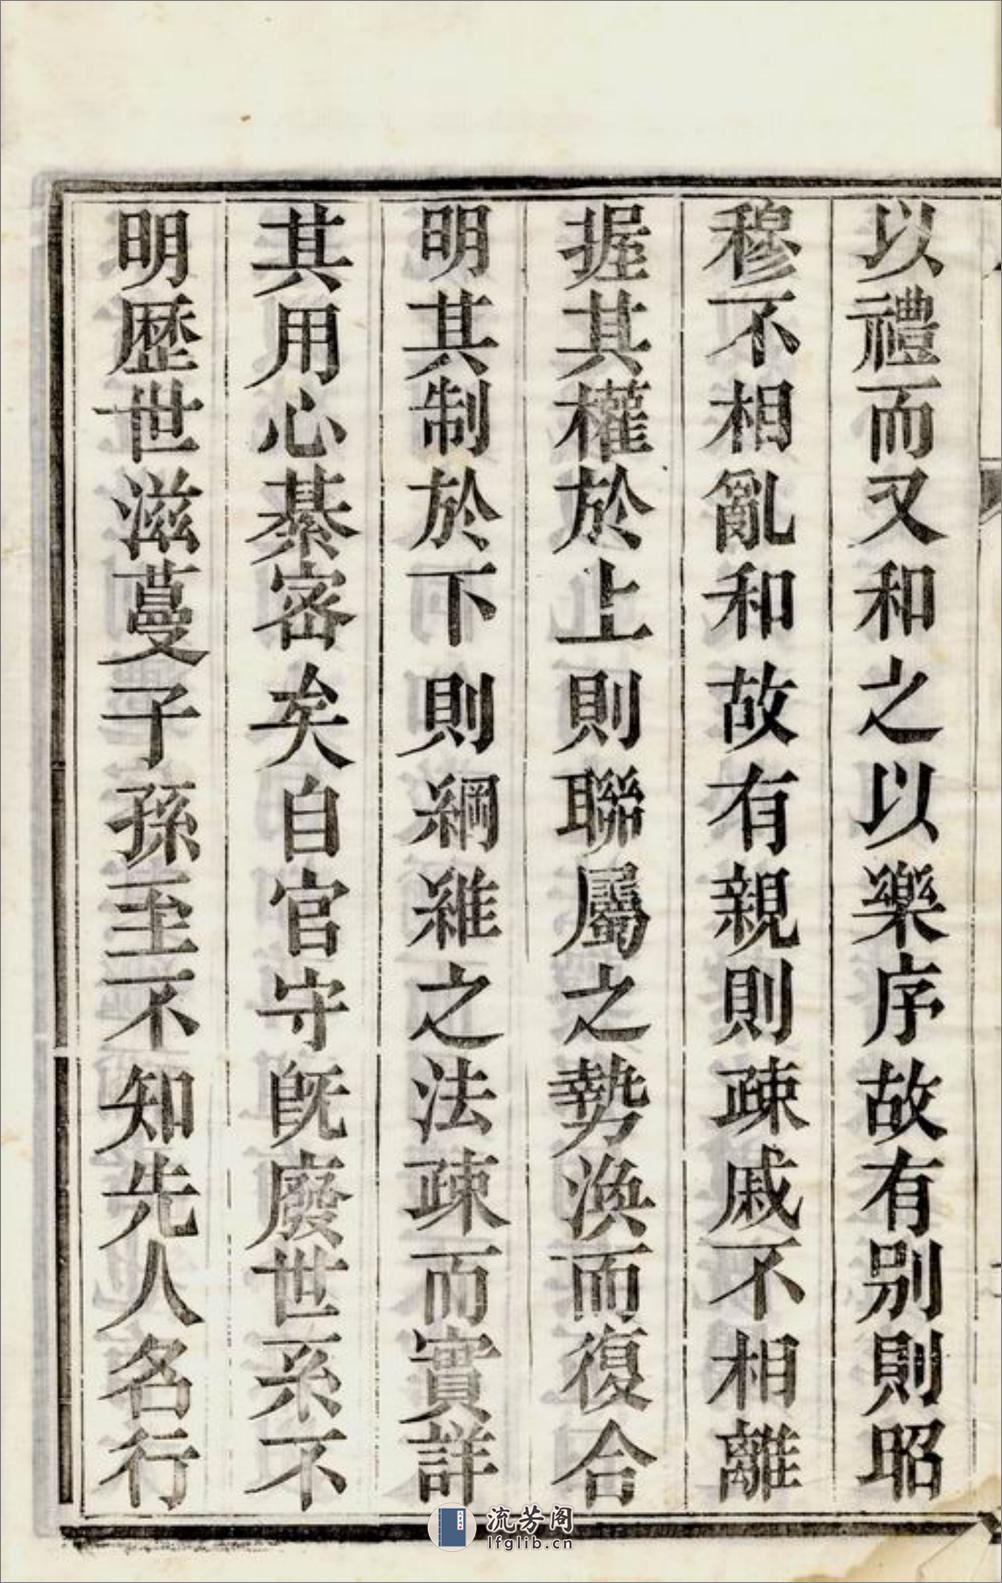 以禮而又和之以樂序故有别則昭
穆不相亂和故有親則疎戚不相離
握其權於上則聯屬之勢渙而復合
明其制於下則綱維之法疎而實詳
其用心綦密矣自官守旣廢世系不
明歷世滋蔓子孫至不知先人名行
流芳阁
lfglib.cn